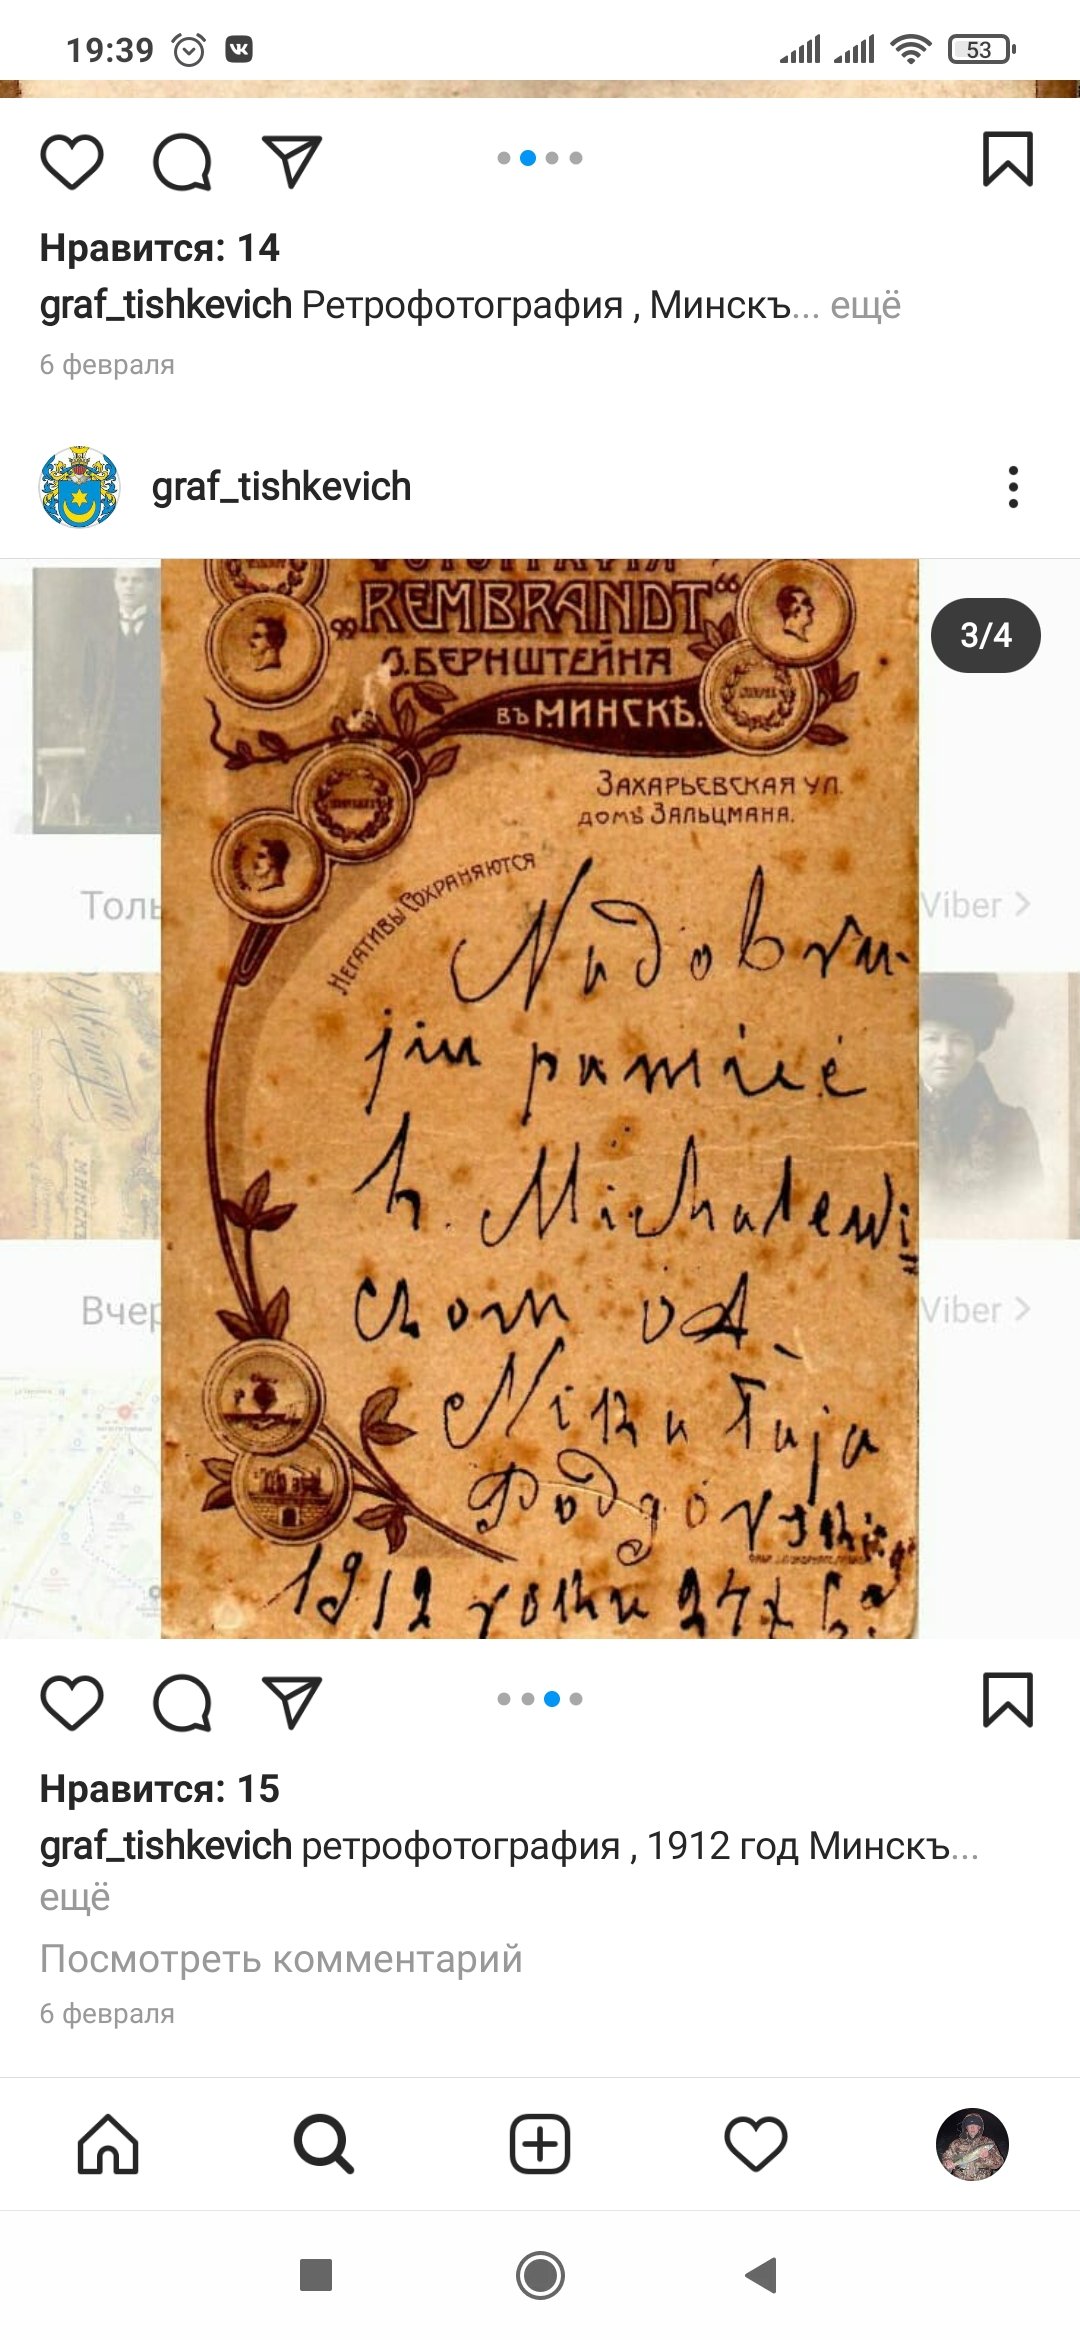 19:39
53
Нравится: 14
graf_tishkevich Ретрофотография , Минскъ... ещё
6 февраля
graf_tishkevich
3/4
„REMBRANDT“
О.БЕРНШТЕЙНА
ВЪ МИНСКѢ.
ЗАХАРЬЕВСКАЯ УЛ.
ДОМЪ ЗАЛЬЦМАНА.
НЕГАТИВЫ СОХРАНЯЮТСЯ
Толь
Viber
Na dobru-
ju pamięć
h. Michalewi
chom od
Nikołaja
1912 roku 27
Вчер
Viber
Нравится: 15
graf_tishkevich ретрофотография , 1912 год Минскъ...
ещё
Посмотреть комментарий
6 февраля